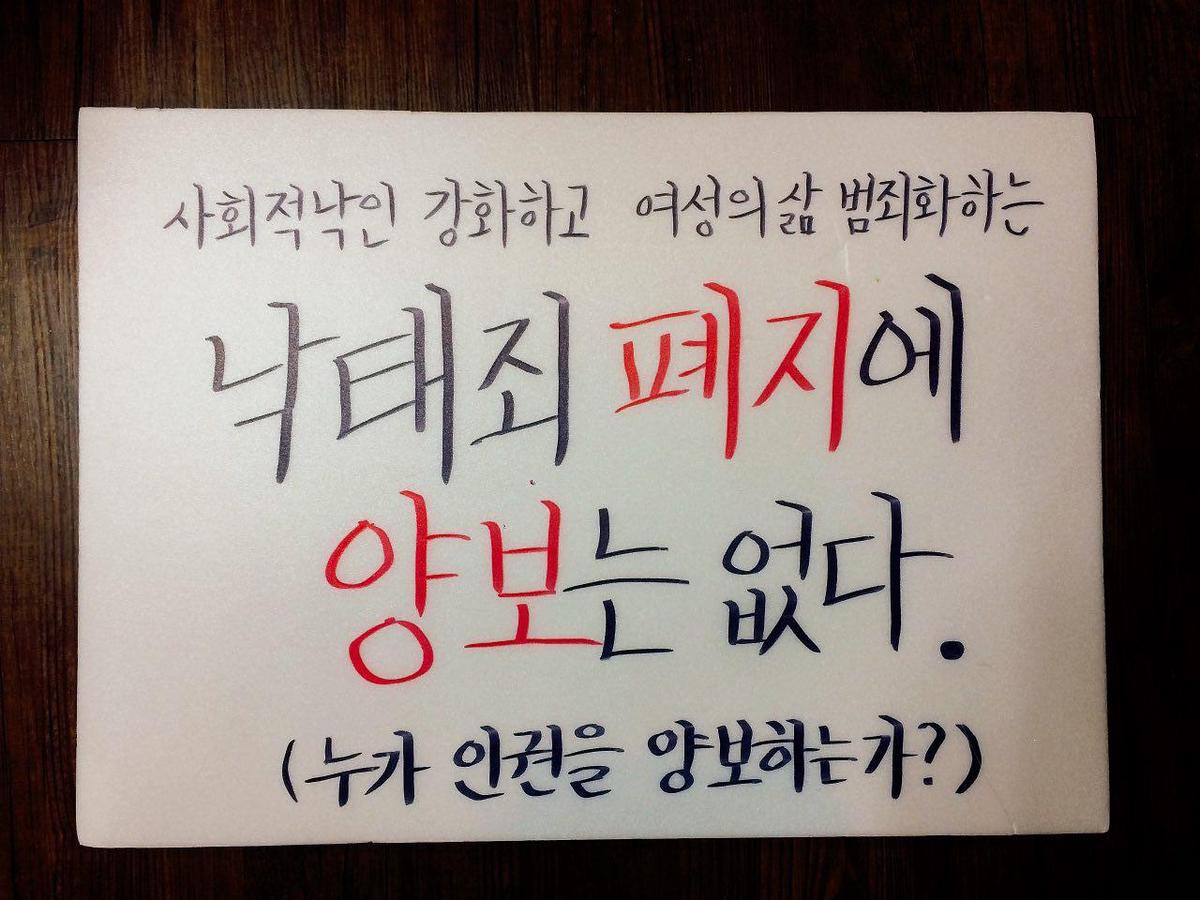 사회적낙인 강화하고 여성의 삶 범죄화하는
낙태죄 폐지에
양보는 없다.
(누가 인권을 양보하는가?)